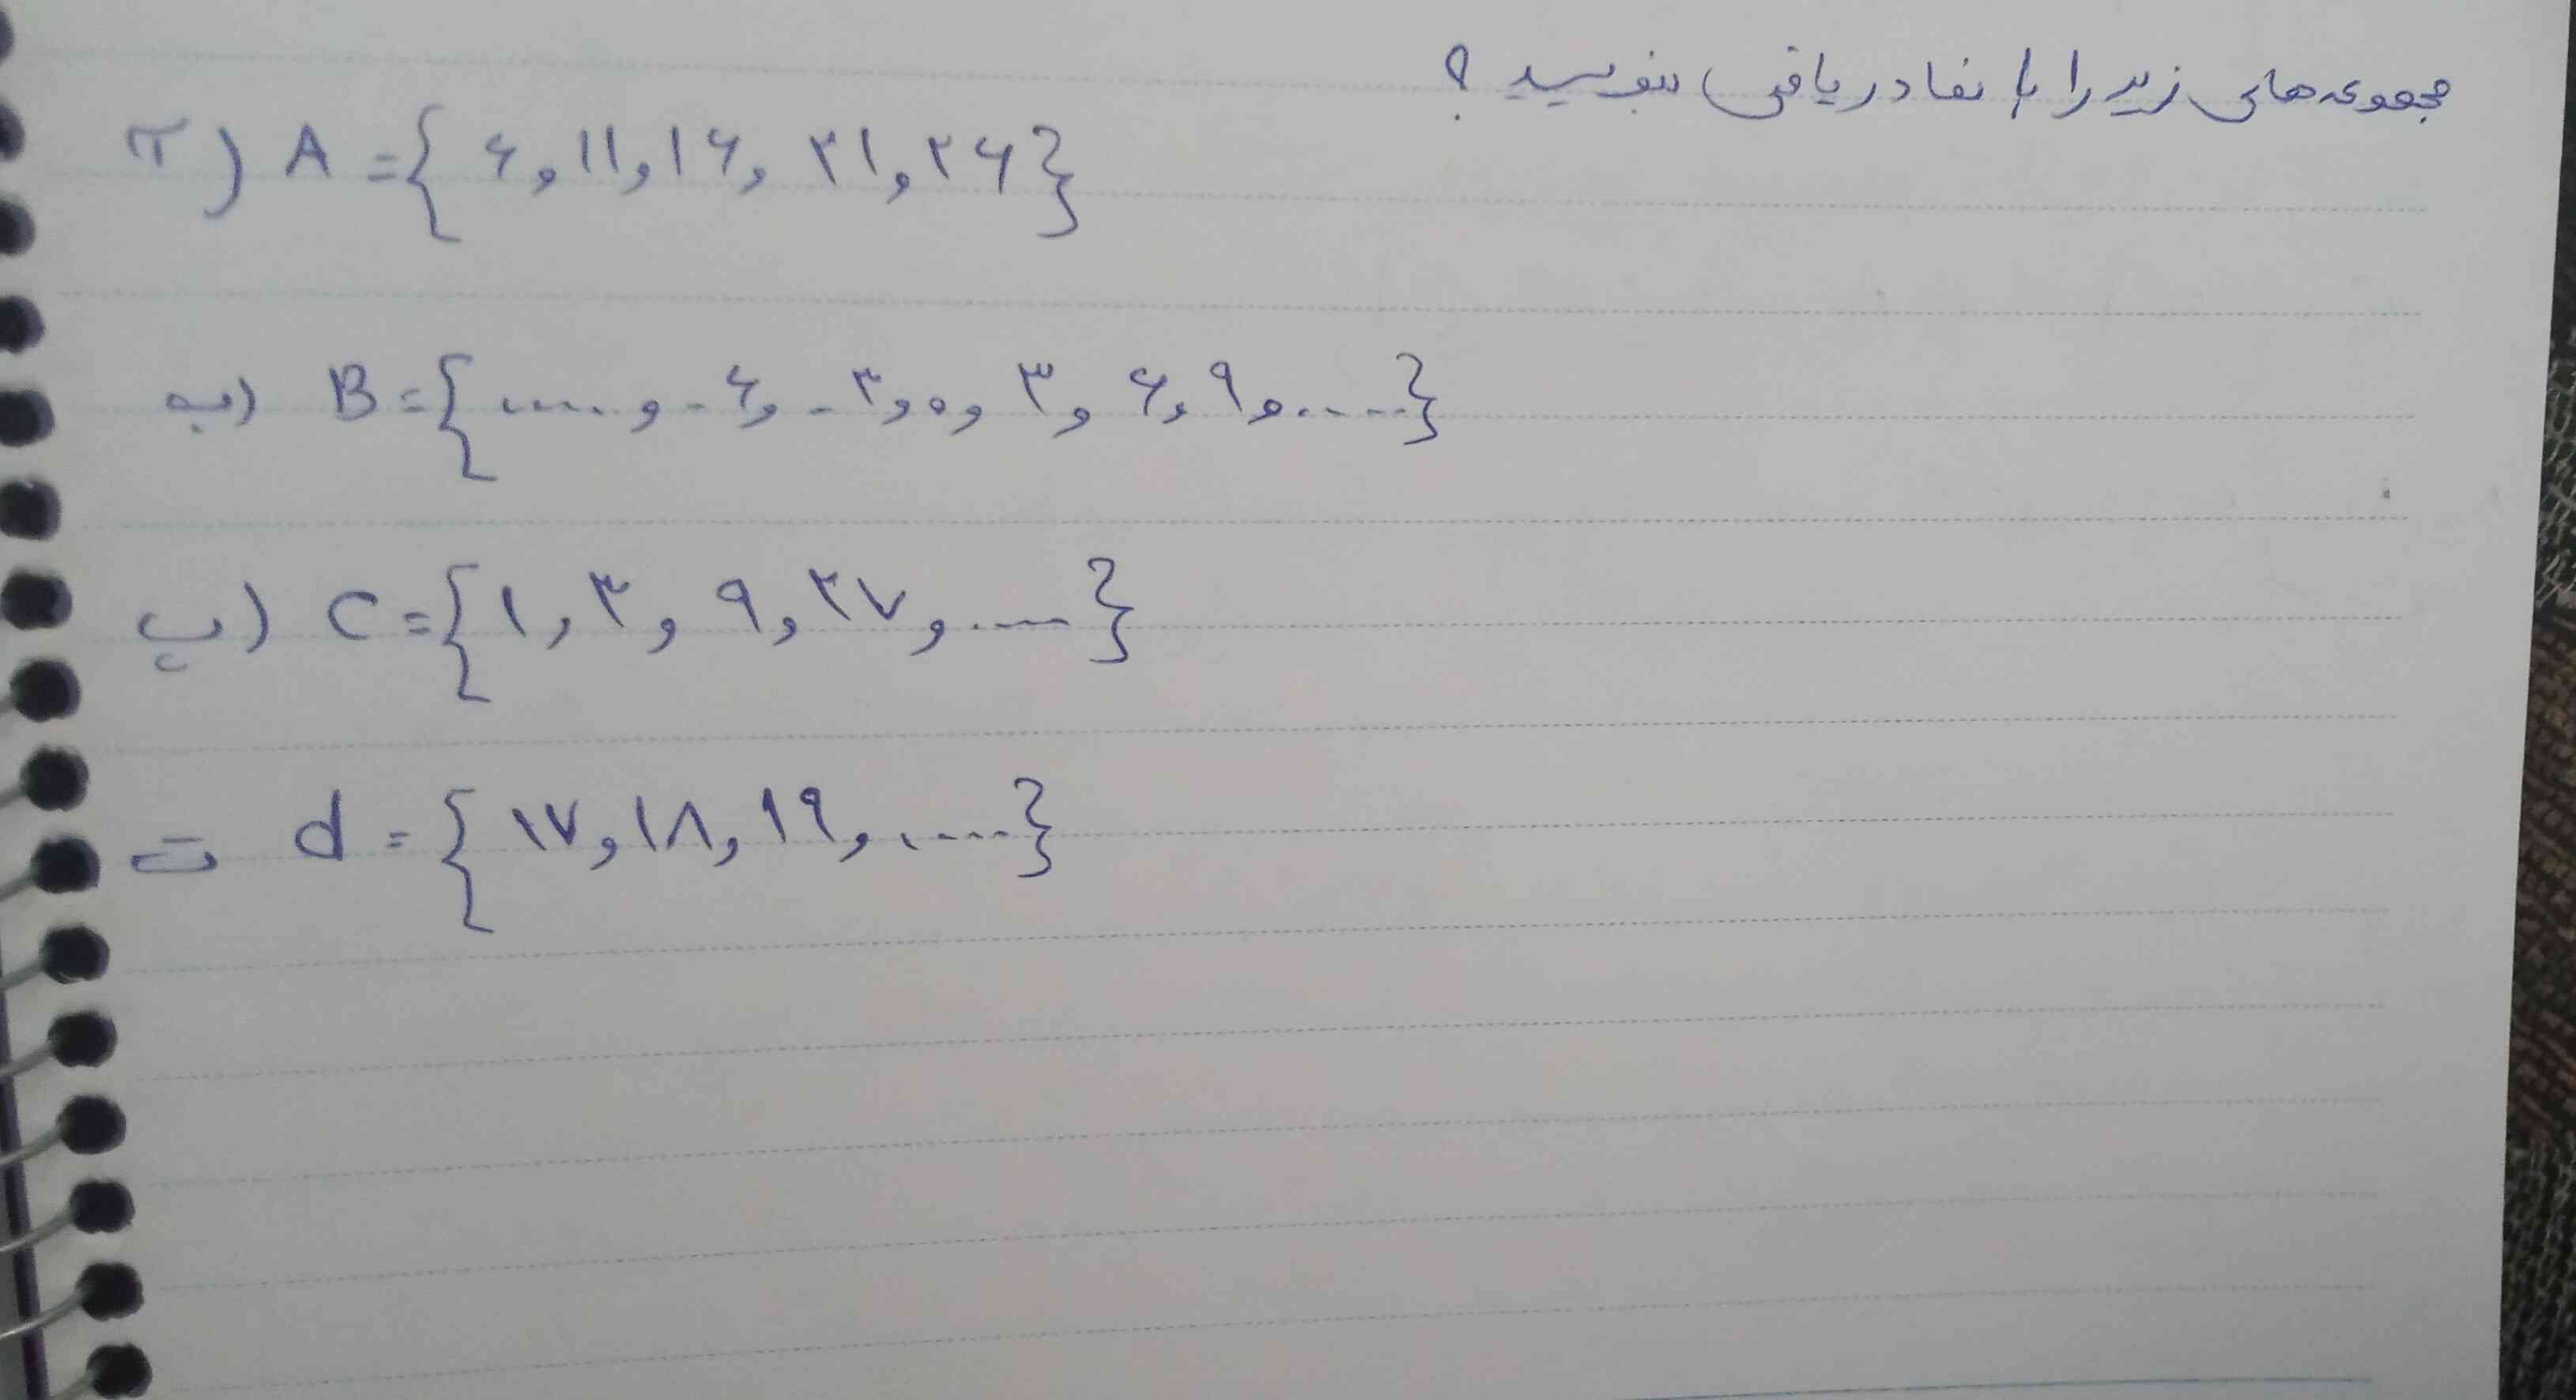 مجموعه‌های زیر را با نماد ریاضی بنویسید ؟
آ) A = { ۶, ۱۱, ۱۶, ۲۱, ۲۶ }
ب) B = { .... , -۶, -۳, ۰, ۳, ۶, ۹, ..... }
پ) C = { ۱, ۳, ۹, ۲۷, ..... }
ت d = { ۱۷, ۱۸, ۱۹, ..... }